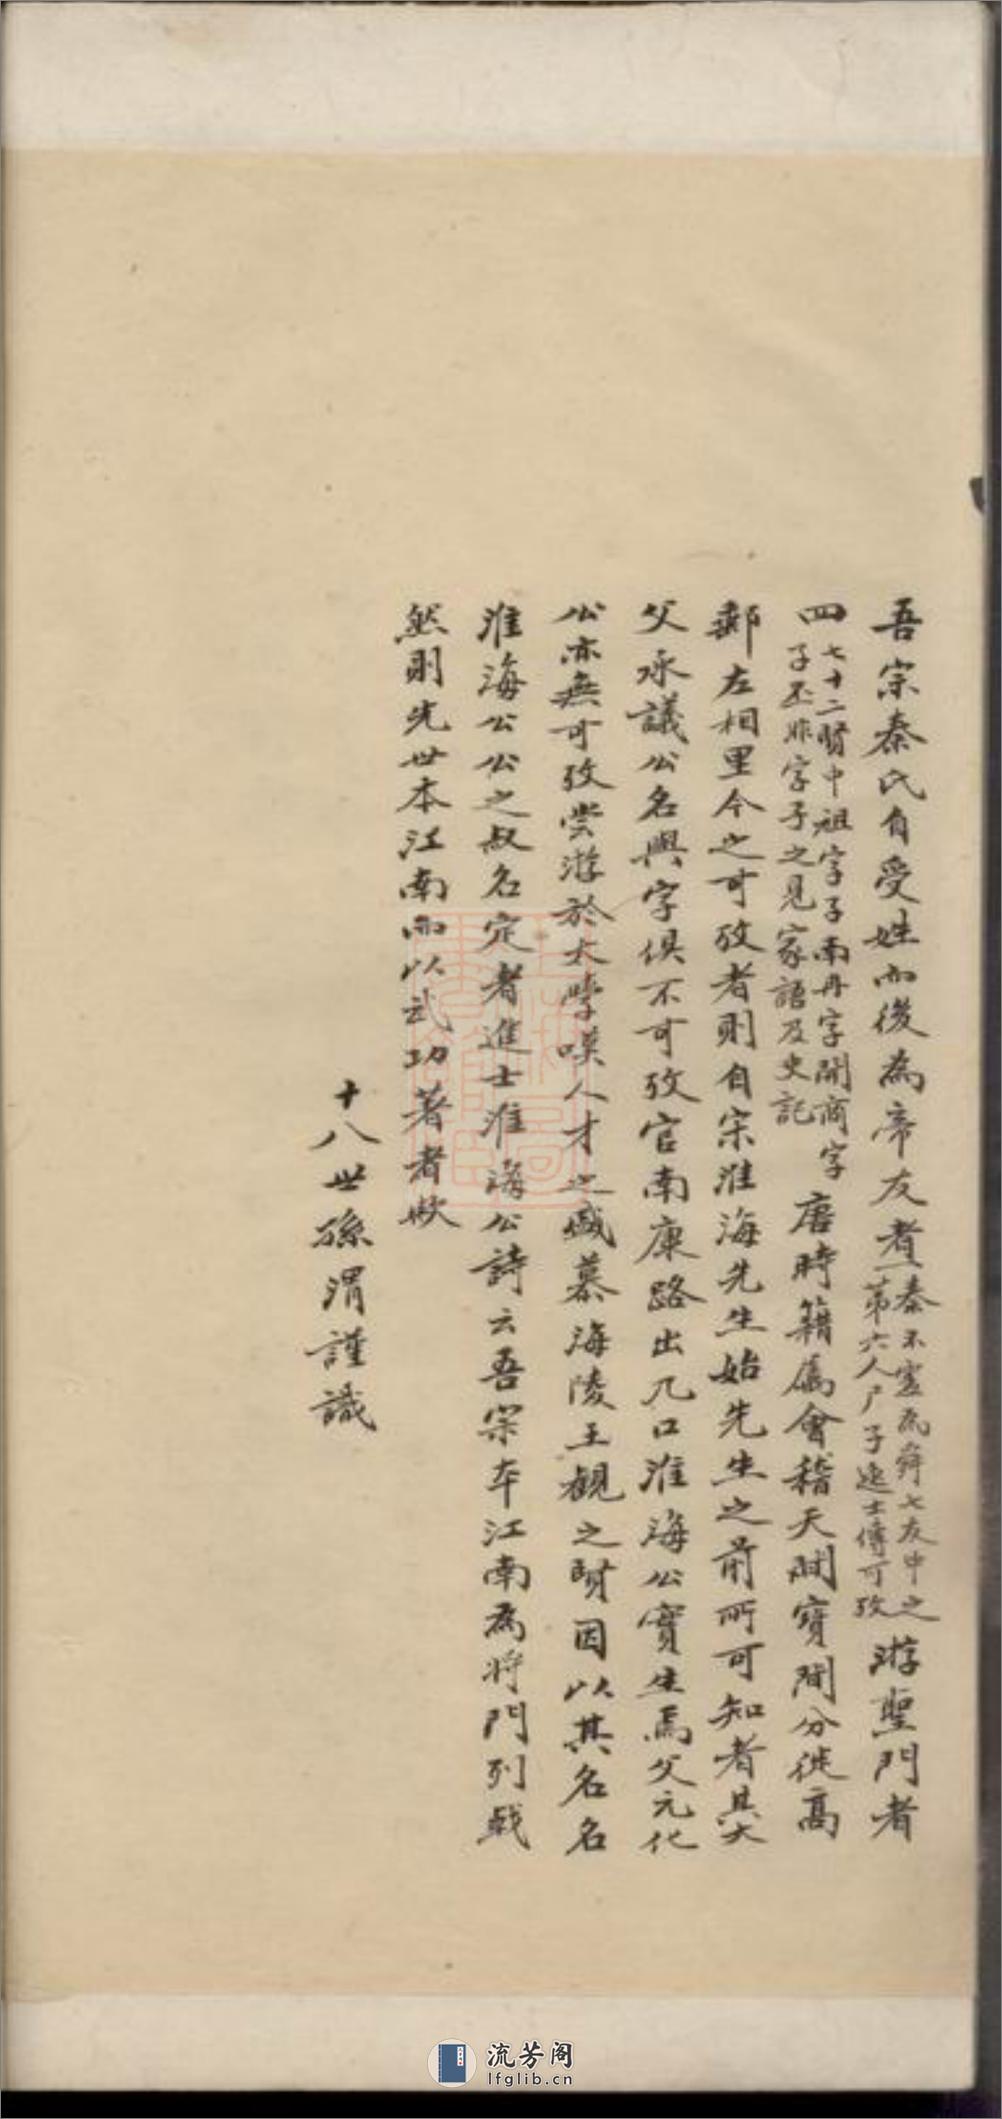 吾宗秦氏自受姓而後為帝友者一秦不虛為舜七友中之第六人尸子逸士傳可攷游聖門者
四七十二賢中祖字子南冉字開商字子丕非字子之見家語及史記唐時籍屬會稽天開寶間分徙高
郵左相里今之可攷者則自宋淮海先生始先生之前所可知者其大
父承議公名與字俱不可攷官南康路出九口淮海公實生焉父元化
公亦無可攷嘗游於太學嘆人才之盛慕海陵王觀之賢因以其名名
淮海公公之叔名定者進士淮海公詩云吾宗本江南為將門列戟
然則先世本江南而以武功著者歟
十八世孫渭謹識
流芳阁
lfglib.cn